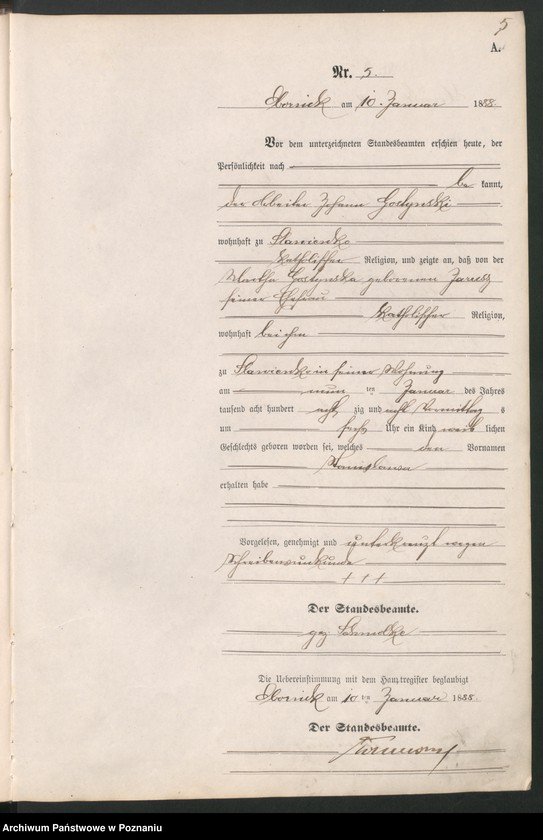 5
A.
Nr. 5.
Obornick am 10. Januar 1888.
Vor dem unterzeichneten Standesbeamten erschien heute, der
Persönlichkeit nach
be kannt,
der Arbeiter Johann
wohnhaft zu Slawienko
katholischer Religion, und zeigte an, daß von der
Martha geborenen
seiner Ehefrau
katholischer Religion,
wohnhaft bei ihm
zu Slawienko in seiner Wohnung
am neun ten Januar des Jahres
tausend acht hundert acht zig und acht Vormittag s
um sechs Uhr ein Kind weib lichen
Geschlechts geboren worden sei, welches den Vornamen
Stanislawa
erhalten habe
Vorgelesen, genehmigt und unterkreuzt wegen
Schreibensunkunde
+ + +
Der Standesbeamte.
gez
Die Uebereinstimmung mit dem Hauptregister beglaubigt
Obornick am 10 ten Januar 1888.
Der Standesbeamte.
Archiwum Państwowe w Poznaniu